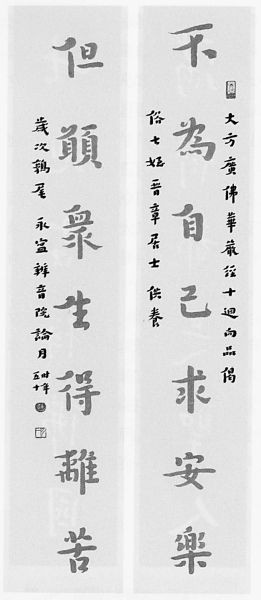 大方廣佛華嚴經十迴向品偈
不為自己求安樂
俗七晉章居士供養
但願衆生得離苦
歲次鶉尾 永寍辨音院論月 時年五十